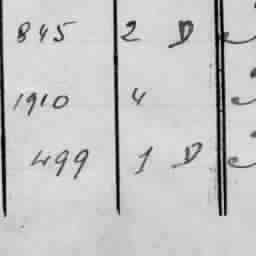 845 2 D
1910 4
499 1 D